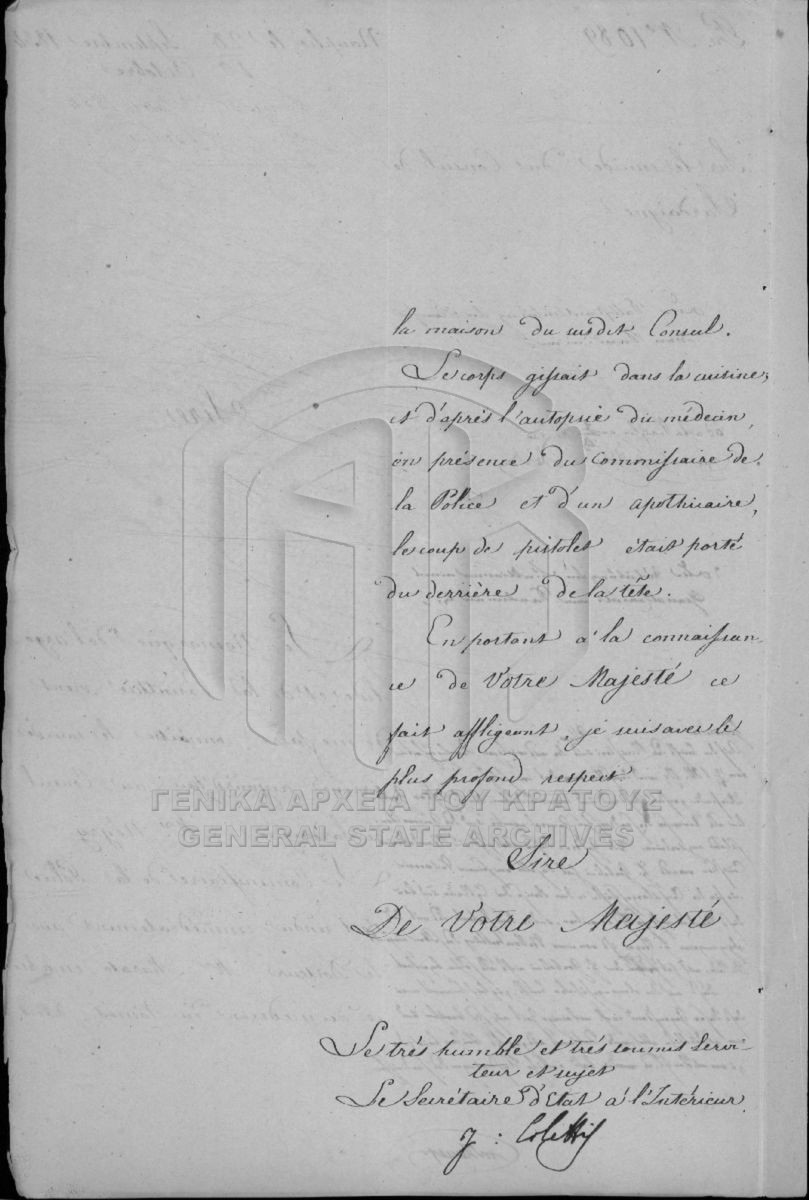 la maison du susdit Consul.
Le corps gissait dans la cuisine,
et d'après l'autopsie du médecin,
en présence du Commissaire de
la Police et d'un apothicaire,
le coup de pistolet était porté
du derrière de la tête.
En portant à la connaissan-
ce de Votre Majesté ce
fait affligeant, je suis avec le
plus profond respect
ΓΕΝΙΚΑ ΑΡΧΕΙΑ ΤΟΥ ΚΡΑΤΟΥΣ
GENERAL STATE ARCHIVES
Sire
De Votre Majesté
Le très humble et très soumis Servi-
teur et sujet
Le Secrétaire d'Etat à l'Intérieur
J: Colettis